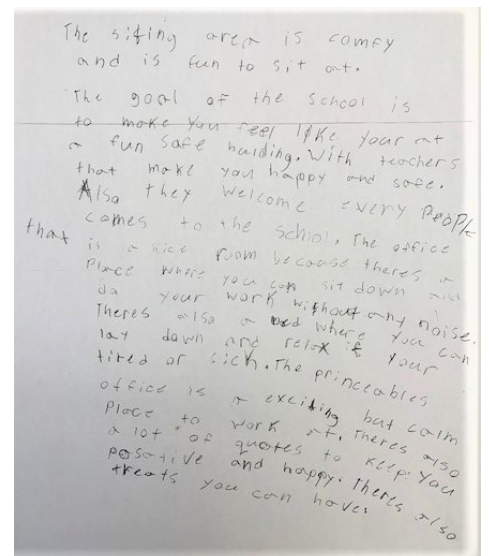 The sifing area is comfy
and is fun to sit at.
The goal of the school is
to make you feel like your at
a fun safe building. With teachers
that make you happy and safe.
Also they welcome every People
that comes to the school. The office
is a nice room because theres a
Place where you can sit down and
do your work without any noise.
Theres also a bed where you can
lay down and relax if your
tired or sick. The princeables
office is a exciting but calm
Place to work at. Theres also
a lot of quotes to keep you
posative and happy. Theres also
treats you can have.